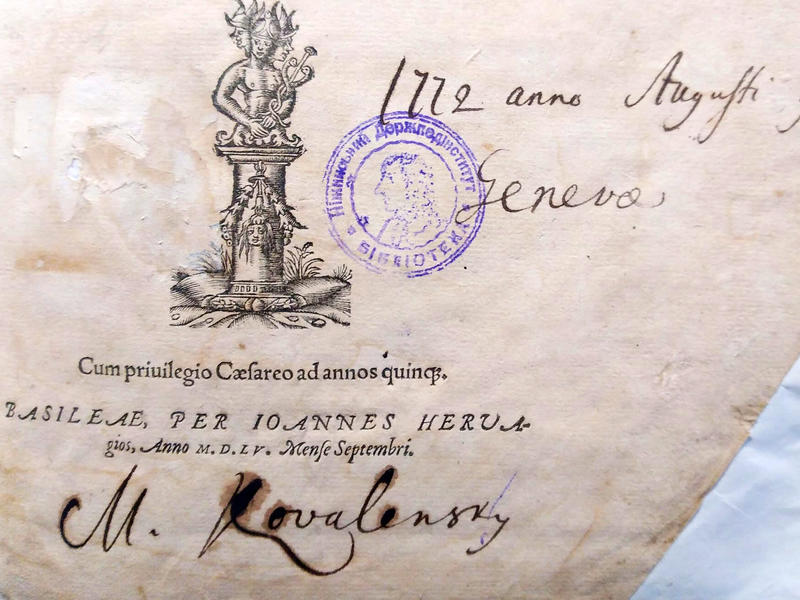 1772 anno Augusti
Genevæ
Ніжинський Держпедінститут
БІБЛІОТЕКА
Cum priuilegio Cæſareo ad annos quinq́;.
BASILEAE, PER IOANNES HERVA-
gios, Anno M. D. LV. Menſe Septembri.
M. Kovalensky